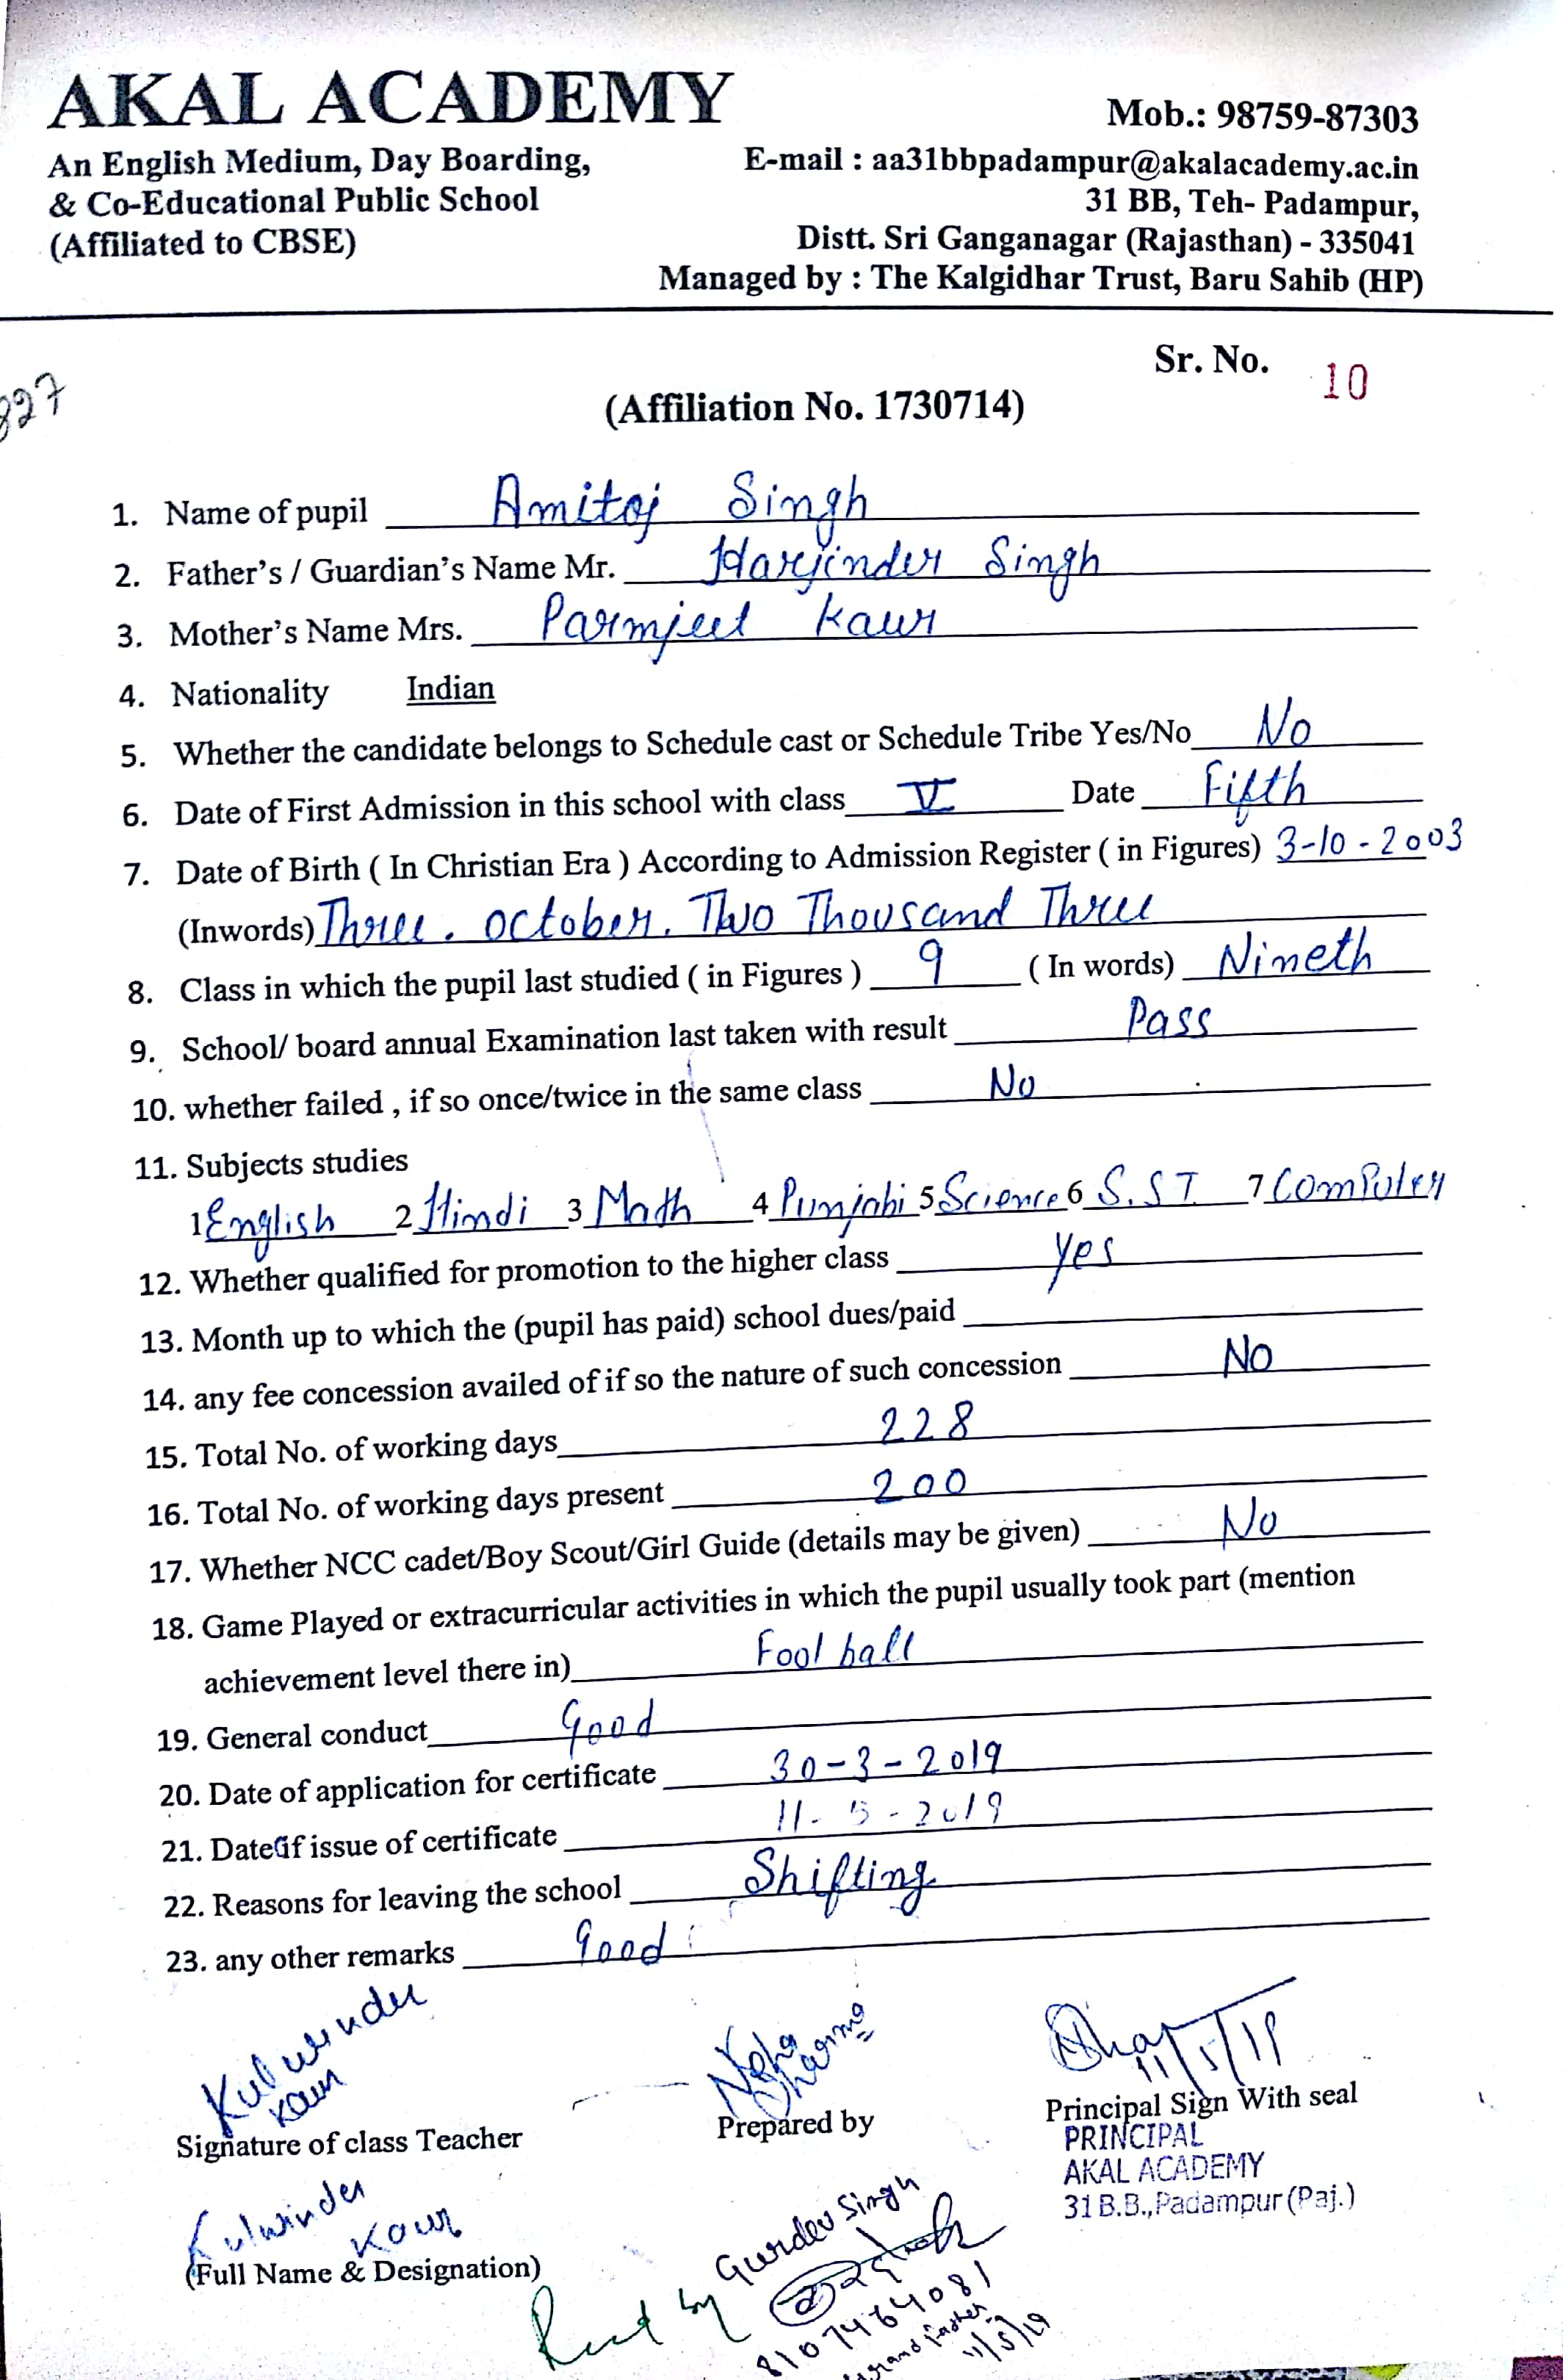 AKAL ACADEMY
An English Medium, Day Boarding,
& Co-Educational Public School
(Affiliated to CBSE)
Mob.: 98759-87303
E-mail : aa31bbpadampur@akalacademy.ac.in
31 BB, Teh- Padampur,
Distt. Sri Ganganagar (Rajasthan) - 335041
Managed by : The Kalgidhar Trust, Baru Sahib (HP)
Sr. No. 10
827
(Affiliation No. 1730714)
1. Name of pupil Amitoj Singh
2. Father's / Guardian's Name Mr. Harjinder Singh
3. Mother's Name Mrs. Parmjeet Kaur
4. Nationality Indian
5. Whether the candidate belongs to Schedule cast or Schedule Tribe Yes/No No
6. Date of First Admission in this school with class V Date Fifth
7. Date of Birth ( In Christian Era ) According to Admission Register ( in Figures) 3-10-2003
(Inwords) Three. october. Two Thousand Three
8. Class in which the pupil last studied ( in Figures ) 9 ( In words) Nineth
9. School/ board annual Examination last taken with result Pass
10. whether failed , if so once/twice in the same class No
11. Subjects studies
1 English 2 Hindi 3 Math 4 Punjabi 5 Science 6 S.ST. 7 Computer
12. Whether qualified for promotion to the higher class yes
13. Month up to which the (pupil has paid) school dues/paid
14. any fee concession availed of if so the nature of such concession No
15. Total No. of working days 228
16. Total No. of working days present 200
17. Whether NCC cadet/Boy Scout/Girl Guide (details may be given) No
18. Game Played or extracurricular activities in which the pupil usually took part (mention
achievement level there in) Foot ball
19. General conduct Good
20. Date of application for certificate 30-3-2019
21. Date of issue of certificate 11-5-2019
22. Reasons for leaving the school Shifting
23. any other remarks Good
Kulwinder
Kaur
Neha
Sharma
11/5/19
Signature of class Teacher
Prepared by
Principal Sign With seal
PRINCIPAL
AKAL ACADEMY
31 B.B., Padampur (Raj.)
Kulwinder
Kaur
(Full Name & Designation)
by Gurdev Singh
8107464081
Grand father
11/5/19